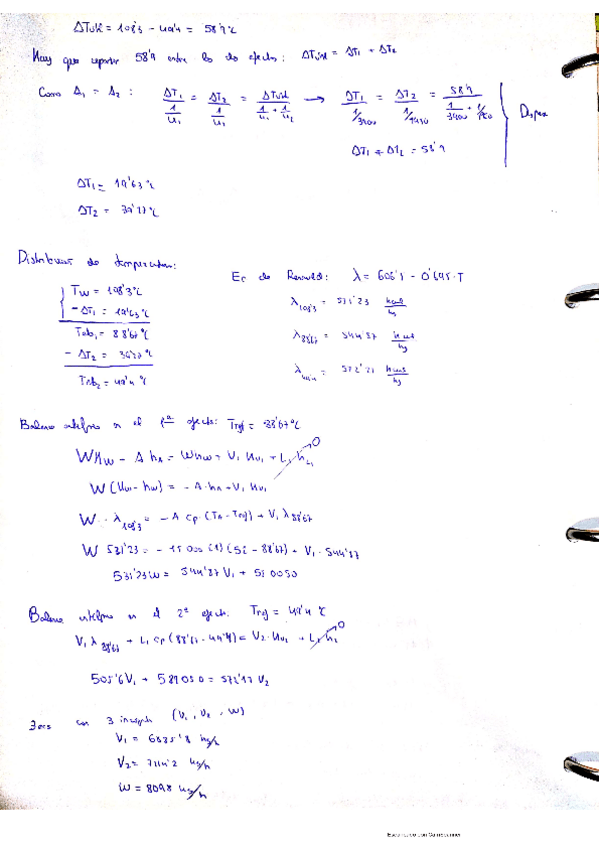 ΔTútil = 108'3 - 49'4 = 58'9 °C
Hay que repartir 58'9 entre los dos efectos: ΔTútil = ΔT₁ + ΔT₂
Como A₁ = A₂ : ΔT₁/(1/U₁) = ΔT₂/(1/U₁) = ΔTútil/(1/U₁ + 1/U₂) → ΔT₁ = ΔT₂ = 58'9
ΔT₁ + ΔT₂ = 58'9
ΔT₁ = 19'63 °C
ΔT₂ = 39'27 °C
de temperaturas:
Ec de Regnault: λ = 606'5 - 0'695·T
Tw = 108'3 °C
- ΔT₁ = 19'63 °C
Teb₁ = 88'67 °C
- ΔT₂ = °C
Teb₂ = 49'4 °C
λ108'3 = 531'23 kcal/kg
λ88'67 = 544'87 kcal/kg
λ49'4 = 572'17 kcal/kg
Balance entálpico en el 1er efecto: Tref = 88'67 °C
W Hw - A hA = W hw + V₁ Hv₁ + L₁ hL₁ 0
W (Hw - hw) = - A·hA + V₁ Hv₁
W · λ108'3 = - A cp (TA - Tref) + V₁ λ88'67
W 531'23 = - 15000 (1) (52 - 88'67) + V₁ · 544'87
531'23 W = 544'87 V₁ + 550050
Balance entálpico en el 2º efecto. Tref = 49'4 °C
V₁ λ88'67 + L₁ cp (88'67 - 49'4) = V₂ · Hv₂ + L₂ h₂ 0
505'6 V₁ + 589050 = 572'17 V₂
3 ecs con 3 incógnitas (V₁, V₂, W)
V₁ = 6885'8 kg/h
V₂ = 7114'2 kg/h
W = 8098 kg/h
Escaneado con CamScanner